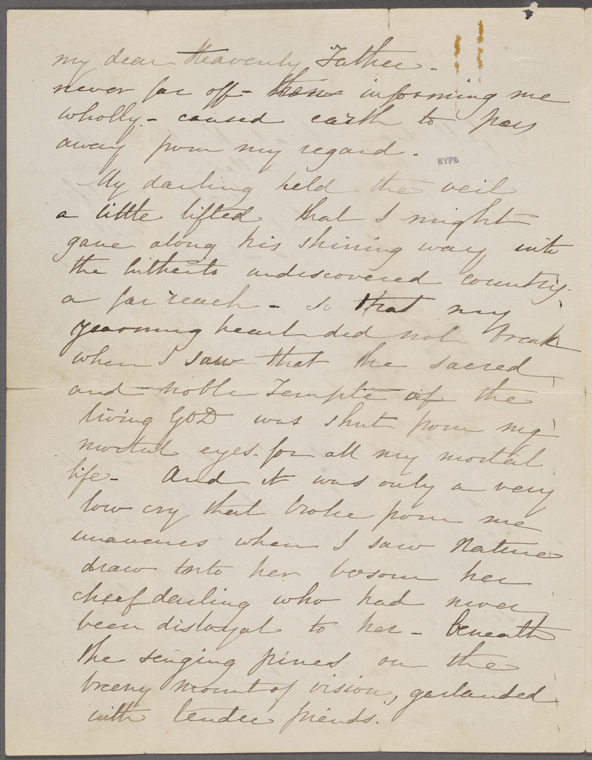 my dear Heavenly Father -
never far off - then informing me
wholly - caused earth to pass
away from my regard.
NYPL
My darling held the veil
a little lifted that I might
gaze along his shining way into
the hitherto undiscovered country -
a far reach - so that my
yearning heart did not break
when I saw that the sacred
and noble Temple of the
living GOD was shut from my
mortal eyes for all my mortal
life - And it was only a very
low cry that broke from me
unawares when I saw Nature
draw into her bosom her
chief darling who had never
been disloyal to her - beneath
the singing pines on the
breezy mount of vision, garlanded
with tender friends.